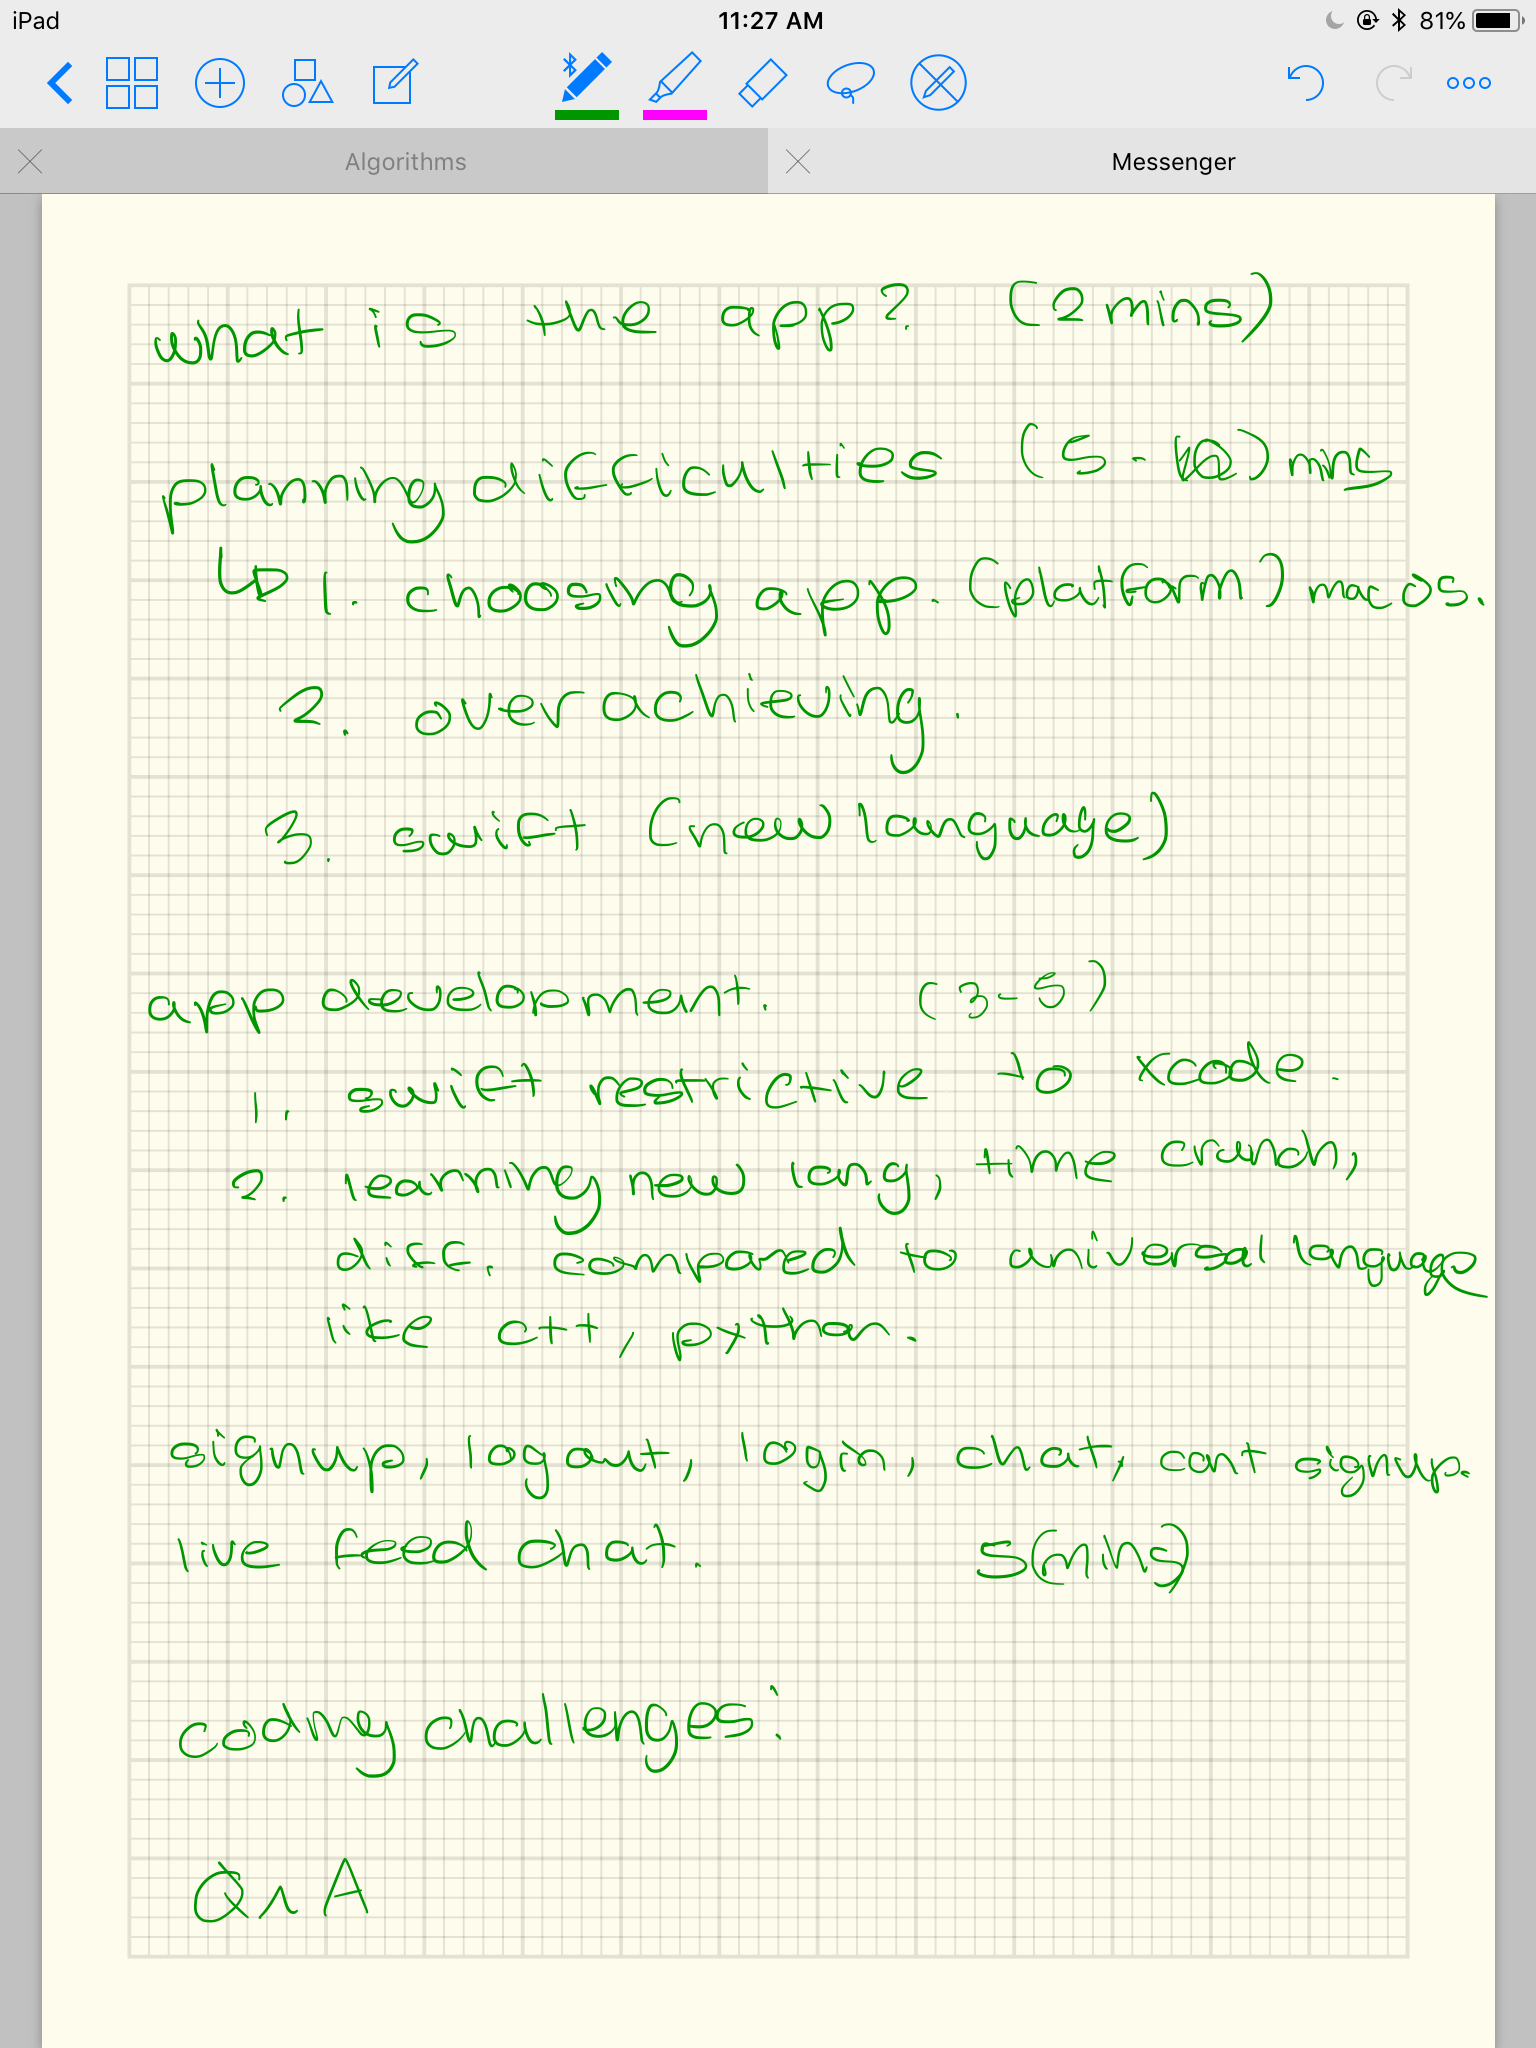 iPad 11:27 AM 81%
Algorithms Messenger
what is the app? (2 mins)
planning difficulties (5 - 10) mins
1. choosing app. (platform) mac OS.
2. over achieving.
3. swift (new language)
app development. (3-5)
1. swift restrictive to xcode.
2. learning new lang, time crunch,
diff. compared to universal language
like c++, python.
signup, logout, login, chat, cant signup.
live feed chat. 5(mins)
coding challenges:
Q n A